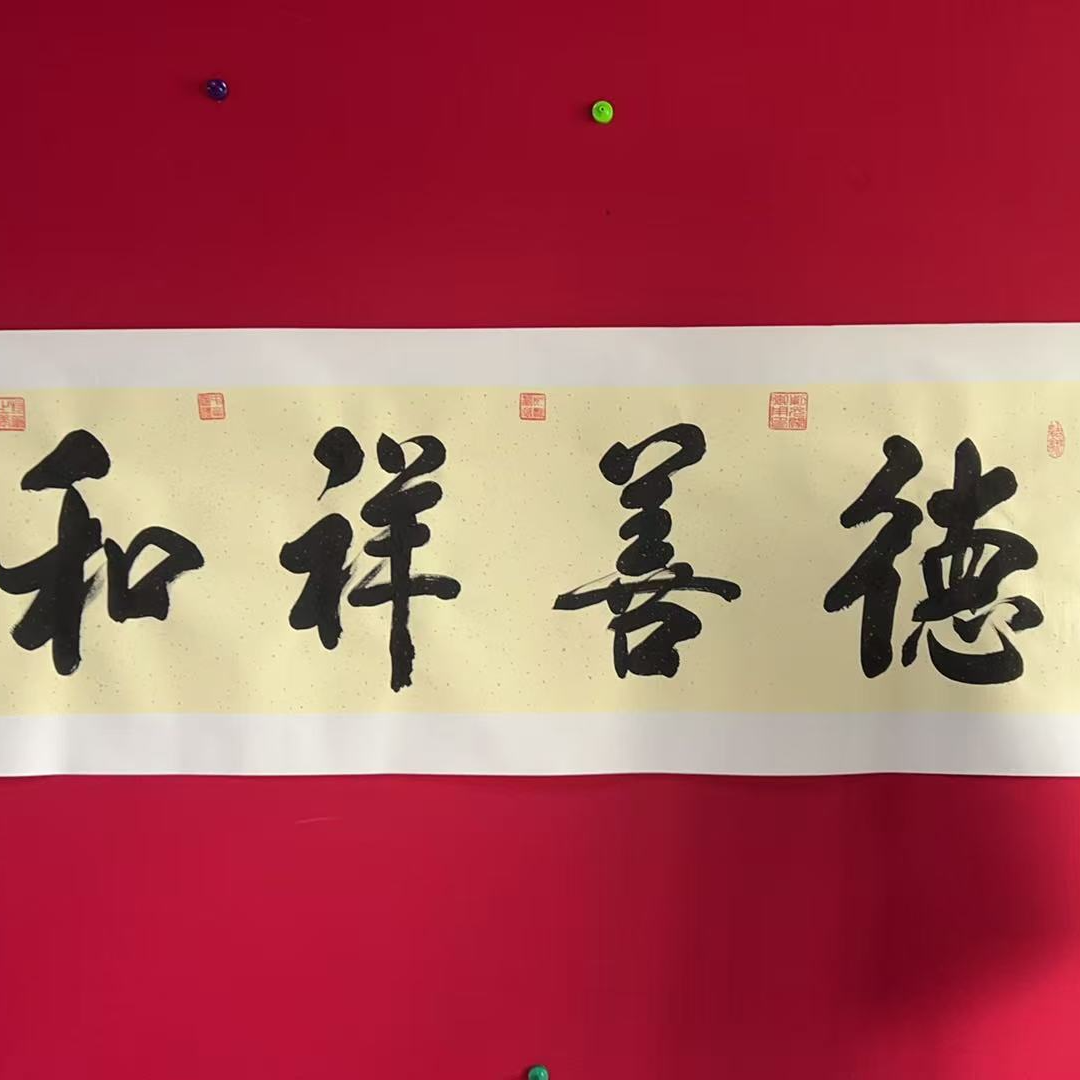 德善祥和